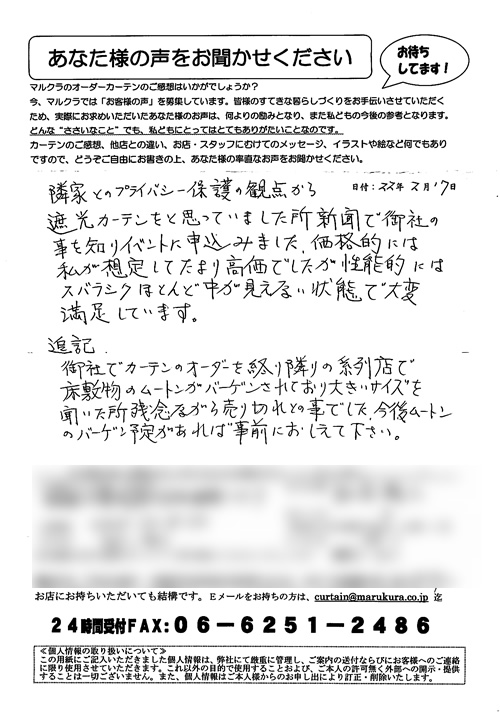 あなた様の声をお聞かせください
お待ち
してます！
マルクラのオーダーカーテンのご感想はいかがでしょうか？
今、マルクラでは「お客様の声」を募集しています。皆様のすてきな暮らしづくりをお手伝いさせていただく
ため、実際にお求めいただいたあなた様のお声は、何よりの励みとなり、また私どもの今後の参考となります。
どんな“ささいなこと”でも、私どもにとってはとてもありがたいことなのです。
カーテンのご感想、他店との違い、お店・スタッフにむけてのメッセージ、イラストや絵など何でもあり
ですので、どうぞご自由にお書きの上、あなた様の率直なお声をお聞かせください。
日付：22年 2月17日
隣家とのプライバシー保護の観点から
遮光カーテンをと思っていました所新聞で御社の
事を知りイベントに申込みました。価格的には
私が想定してたより高価でしたが性能的には
スバラシクほとんど中が見えない状態で大変
満足しています。
追記
御社でカーテンのオーダーを終り隣りの系列店で
床敷物のムートンがバーゲンされており大きいサイズを
聞いた所残念ながら売り切れとの事でした。今後ムートン
のバーゲン予定があれば事前におしえて下さい。
お店にお持ちいただいても結構です。Eメールをお持ちの方は、curtain@marukura.co.jp 迄
24時間受付FAX：06－6251－2486
≪個人情報の取り扱いについて≫
この用紙にご記入いただきました個人情報は、弊社にて厳重に管理し、ご案内の送付ならびにお客様へのご連絡
に限り使用させていただきます。これ以外の目的で使用することおよび、ご本人の許可無く外部への開示・提供
することは一切ございません。また、個人情報はご本人様からのお申し出により訂正・削除いたします。